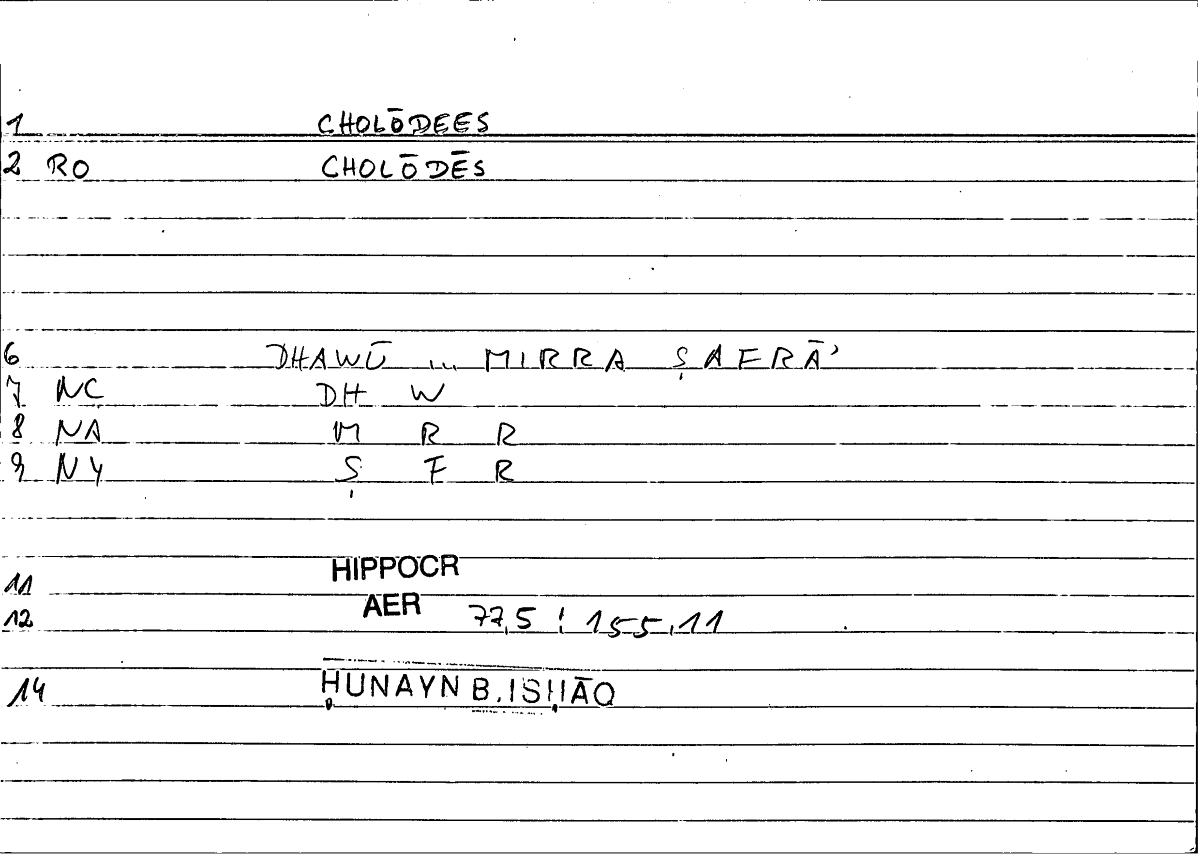 1 CHOLŌDEES
2 RO CHOLŌDĒS
6 DHAWŪ ... MIRRA ṢAFRĀ'
7 NC DH W
8 NA M R R
9 NY Ṣ F R
11 HIPPOCR
12 AER 77,5 : 155,11
14 ḤUNAYN B. ISḤĀQ